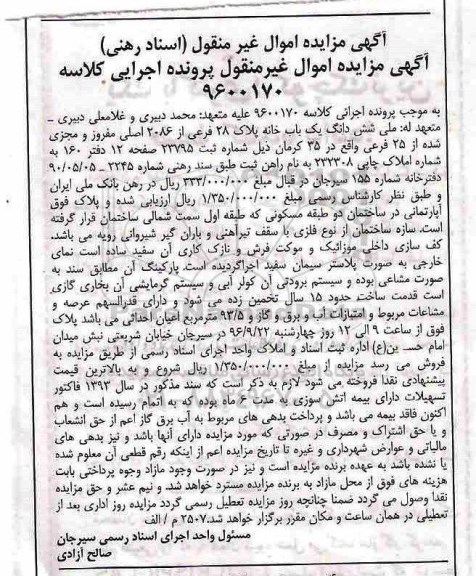 آگهی مزایده اموال غیر منقول (اسناد رهنی)
آگهی مزایده اموال غیرمنقول پرونده اجرایی کلاسه
۹۶۰۰۱۷۰
به موجب پرونده اجرائی کلاسه ۹۶۰۰۱۷۰ علیه متعهد: محمد دبیری و غلامعلی دبیری _
متعهد له: ملی شش دانگ یک باب خانه پلاک ۲۸ فرعی از ۲۰۸۶ اصلی مفروز و مجزی
شده از ۲۵ فرعی واقع در ۳۵ کرمان ذیل شماره ثبت ۲۳۷۹۵ صفحه ۱۲ دفتر ۱۶۰ به
شماره املاک چاپی ۲۲۲۳۰۸ به نام راهن ثبت طبق سند رهنی شماره ۲۲۴۵ _ ۹۰/۰۵/۰۵
دفترخانه شماره ۱۵۵ سیرجان در قبال مبلغ ۳۳۳/۰۰۰/۰۰۰ ریال در رهن بانک ملی ایران
و طبق نظر کارشناس رسمی مبلغ ۱/۳۵۰/۰۰۰/۰۰۰ ریال ارزیابی شده و پلاک فوق
آپارتمانی در ساختمان دو طبقه مسکونی که طبقه اول سمت شمالی ساختمان قرار گرفته
است. سازه ساختمان از نوع فلزی با سقف تیرآهنی و باران گیر شیروانی رویه می باشد.
کف سازی داخلی موزائیک و موکت فرش و نازک کاری آن سفید ساده است نمای
خارجی به صورت پلاستر سیمان سفید اجراگردیده است. پارکینگ آن مطابق سند به
صورت مشاعی بوده و سیستم برودتی آن کولر آبی و سیستم گرمایشی آن بخاری گازی
است قدمت ساخت حدود ۱۵ سال تخمین زده می شود و دارای قدرالسهم عرصه و
مشاعات مربوط و امتیازات آب و برق و گاز و ۹۳/۵ مترمربع اعیان احداثی می باشد پلاک
فوق از ساعت ۹ الی ۱۲ روز چهارشنبه ۹۶/۹/۲۲ در سیرجان خیابان شریعتی نبش میدان
امام حسین(ع) اداره ثبت اسناد و املاک واحد اجرای اسناد رسمی از طریق مزایده به
فروش می رسد مزایده از مبلغ ۱/۳۵۰/۰۰۰/۰۰۰ ریال شروع و به بالاترین قیمت
پیشنهادی نقدا فروخته می شود لازم به ذکر است که سند مذکور در سال ۱۳۹۳ فاکتور
تسهیلات دارای بیمه اتش سوزی به مدت ۶ ماه بوده که به اتمام رسیده است و هم
اکنون فاقد بیمه می باشد و پرداخت بدهی های مربوط به آب برق گاز اعم از حق انشعاب
و یا حق اشتراک و مصرف در صورتی که مورد مزایده دارای آنها باشد و نیز بدهی های
مالیاتی و عوارض شهرداری و غیره تا تاریخ مزایده اعم از اینکه رقم قطعی آن معلوم شده
یا نشده باشد به عهده برنده مزایده است و نیز در صورت وجود مازاد وجوه پرداختی بابت
هزینه های فوق از محل مازاد به برنده مزایده مسترد خواهد شد. و نیم عشر و حق مزایده
نقدا وصول می گردد ضمنا چنانچه روز مزایده تعطیل رسمی گردد مزایده روز اداری بعد از
تعطیلی در همان ساعت و مکان مقرر برگزار خواهد شد.۲۵۰۷ م / الف
مسئول واحد اجرای اسناد رسمی سیرجان
صالح آزادی